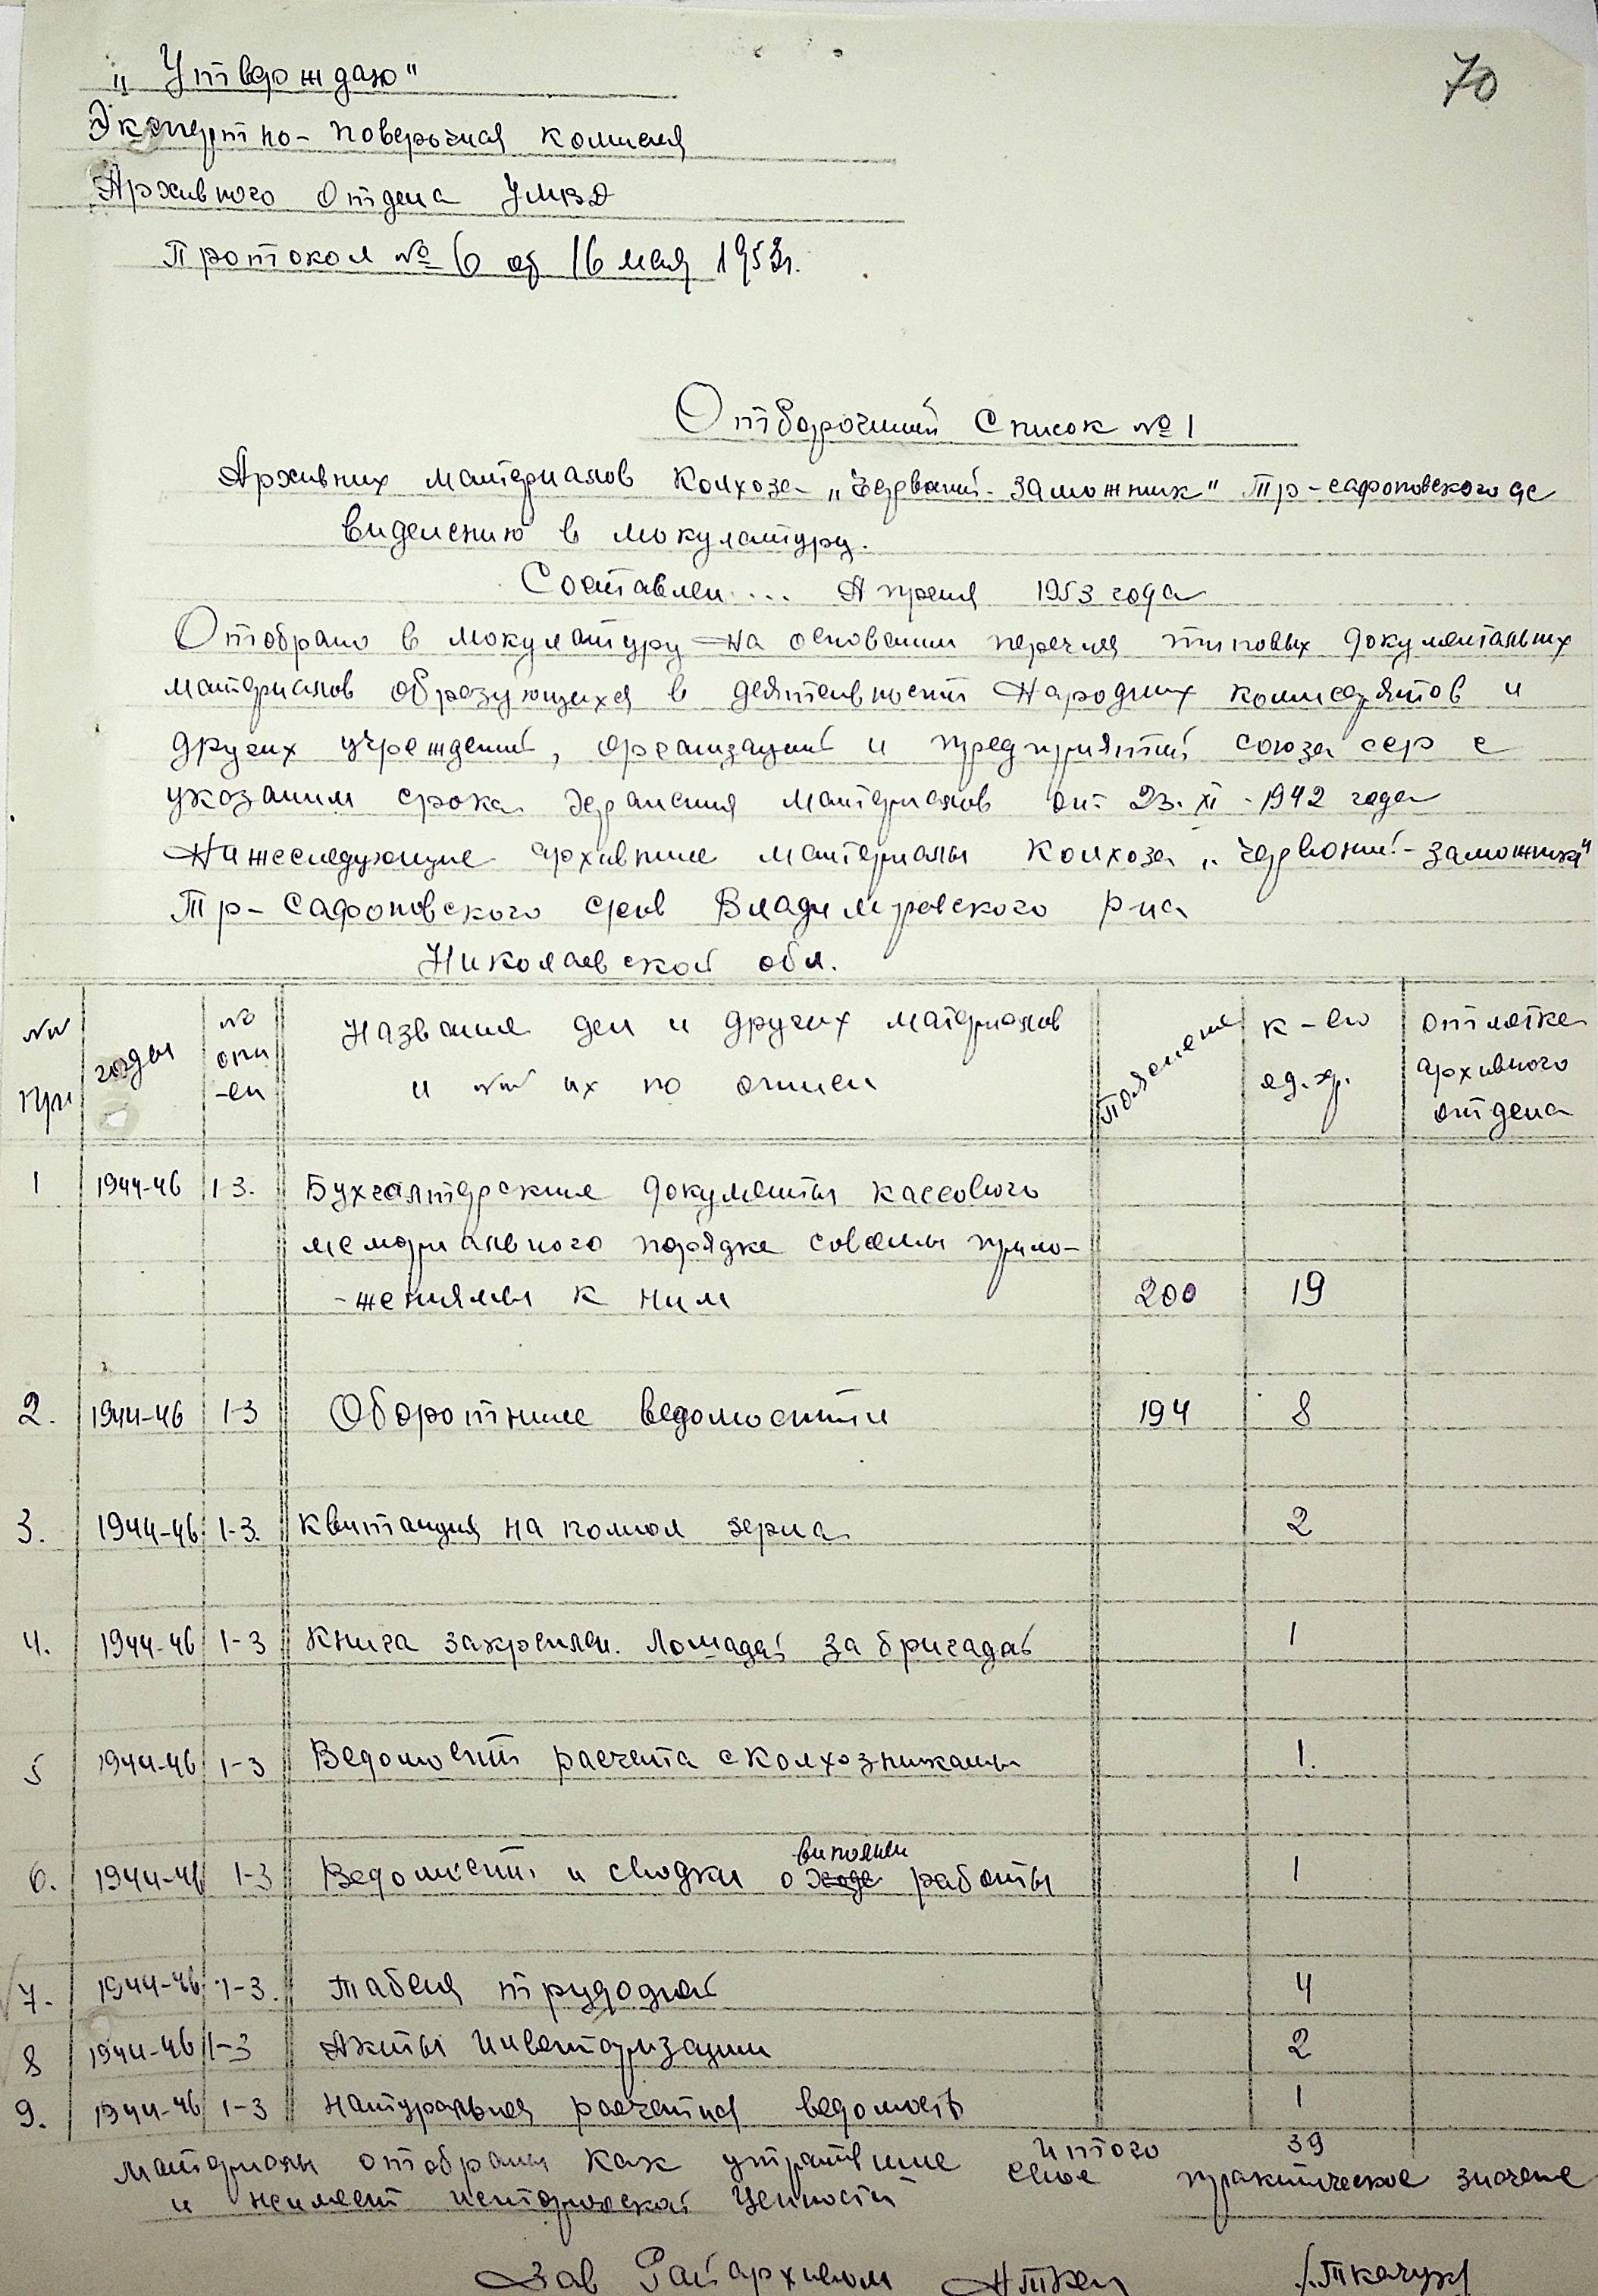 70
„Утверждаю"
Экспертно-поверочная комисия
Архивного отдела УМВД
Протокол № 6 от 16 мая 1953г.
Отборочний список № 1
Архивних материалов колхоза „Червоний-заможник" Тр-сафоновского с/с
виделению в мокулатуру.
Составлен ... Апреля 1953 года
Отобрано в мокулатуру на основании перечня типовых документальних
материалов образующихся в деятельности Народних комисариатов и
других учреждений, организаций и предприятий союза сср с
указанием срока хранения материалов от 23.XI-1942 года
Нижеследующие архивние материалы колхоза „Червоний-заможник"
Тр-Сафоновского с/сов Владимировского р-на
Николаевской обл.
№№ п/п | годы | № опи-си | Название дел и других материалов и №№ их по описи | Пояснение | к-во ед. хр. | отметка архивного отдела
1 | 1944-46 | 1-3. | Бухгалтерские документы кассового
мемориального порядка совсеми прило-
-жениями к ним | 200 | 19
2. | 1944-46 | 1-3 | Оборотние ведомости | 194 | 8
3. | 1944-46 | 1-3. | Квитанция на помол зерна | 2
4. | 1944-46 | 1-3 | Книга закреплен. Лошадей за бригадой | 1
5 | 1944-46 | 1-3 | Ведомость расчета с колхозниками | 1.
выполнен
6. | 1944-46 | 1-3 | Ведомость и сводки о ходе работы | 1
7. | 1944-46 | 1-3. | Табеля трудодней | 4
8 | 1944-46 | 1-3 | Акты инвентаризации | 2
9. | 1944-46 | 1-3 | Натуральная расчетная ведомость | 1
Итого 39
материалы отобраны как утратившие свое практическое значение
и неимеет исторической ценности
Зав Райархивом /Ткачук/